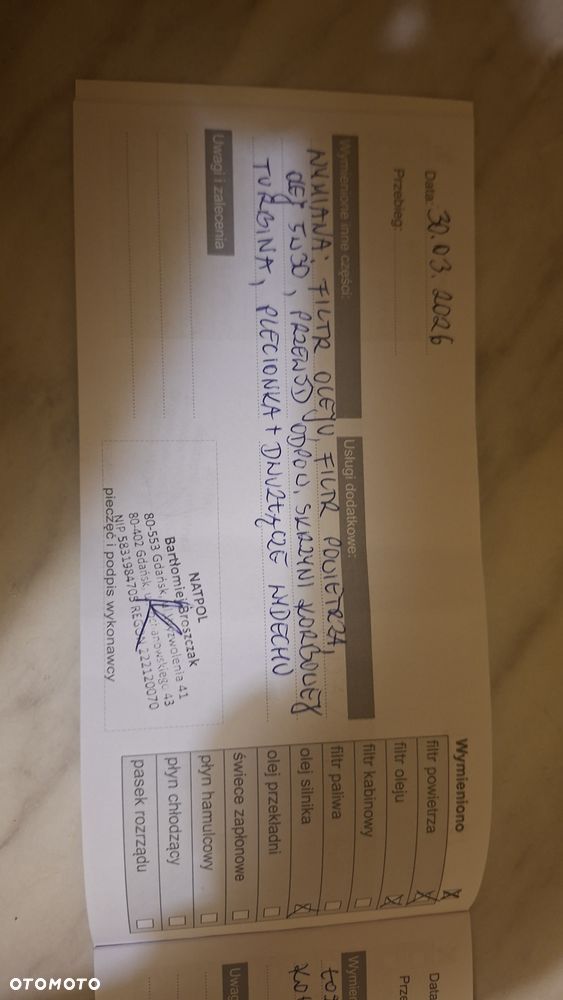 Data: 30.03.2026
Przebieg:
Wymienione inne części:
Usługi dodatkowe:
WYMIANA: FILTR OLEJU, FILTR POWIETRZA,
OLEJ 5W30, PRZEWÓD ODPOW. SKRZYNI KORBOWEJ
TURBINA, PLECIONKA + DWUZŁĄCZE WYDECHU
Uwagi i zalecenia
NATPOL
Bartłomiej Broszczak
80-553 Gdańsk, 41
80-402 Gdańsk, 43
NIP 5831984703 REGON 222120070
pieczęć i podpis wykonawcy
Wymieniono
filtr powietrza
filtr oleju
filtr kabinowy
filtr paliwa
olej silnika
olej przekładni
świece zapłonowe
płyn hamulcowy
płyn chłodzący
pasek rozrządu
Data
Prze
Wymie
Uwag
OTOMOTO